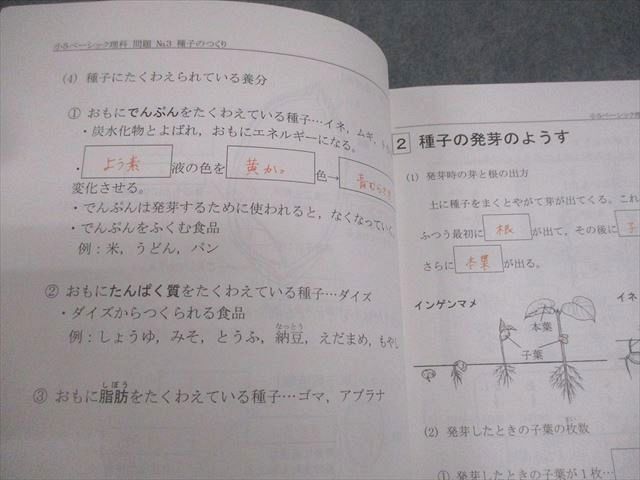 小5ベーシック理科 問題 №3 種子のつくり
(4) 種子にたくわえられている養分
① おもにでんぷんをたくわえている種子…イネ，ムギ，
・炭水化物とよばれ，おもにエネルギーになる。
・ よう素 液の色を 黄かっ 色→ 青むらさき
変化させる。
・でんぷんは発芽するために使われると，なくなっていく。
・でんぷんをふくむ食品
例：米，うどん，パン
② おもにたんぱく質をたくわえている種子…ダイズ
・ダイズからつくられる食品
なっとう
例：しょうゆ，みそ，とうふ，納豆，えだまめ，もやし
しぼう
③ おもに脂肪をたくわえている種子…ゴマ，アブラナ
小5ベーシック理
2 種子の発芽のようす
(1) 発芽時の芽と根の出方
土に種子をまくとやがて芽が出てくる。これ
ふつう最初に 根 が出て，その後に 子
さらに 本葉 が出る。
インゲンマメ
イネ
本葉
子葉
まい
(2) 発芽したときの子葉の枚数
① 発芽したときの子葉が1枚…